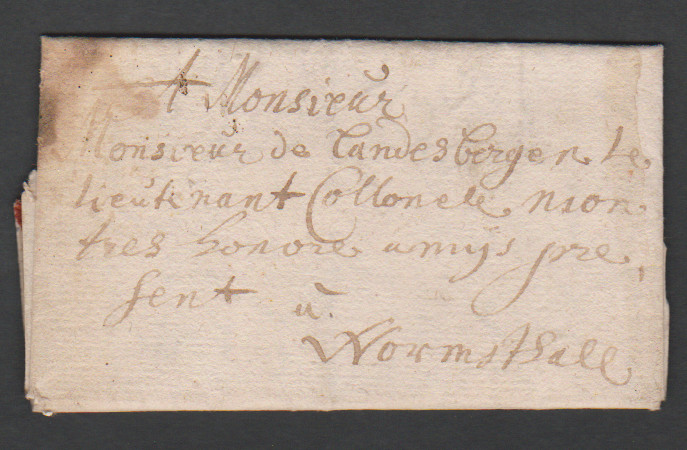 A Monsieur
Monsieur de Landesbergen le
lieutenant Collonele mon
tres honore amijs pre
sent
a
Wormsthall